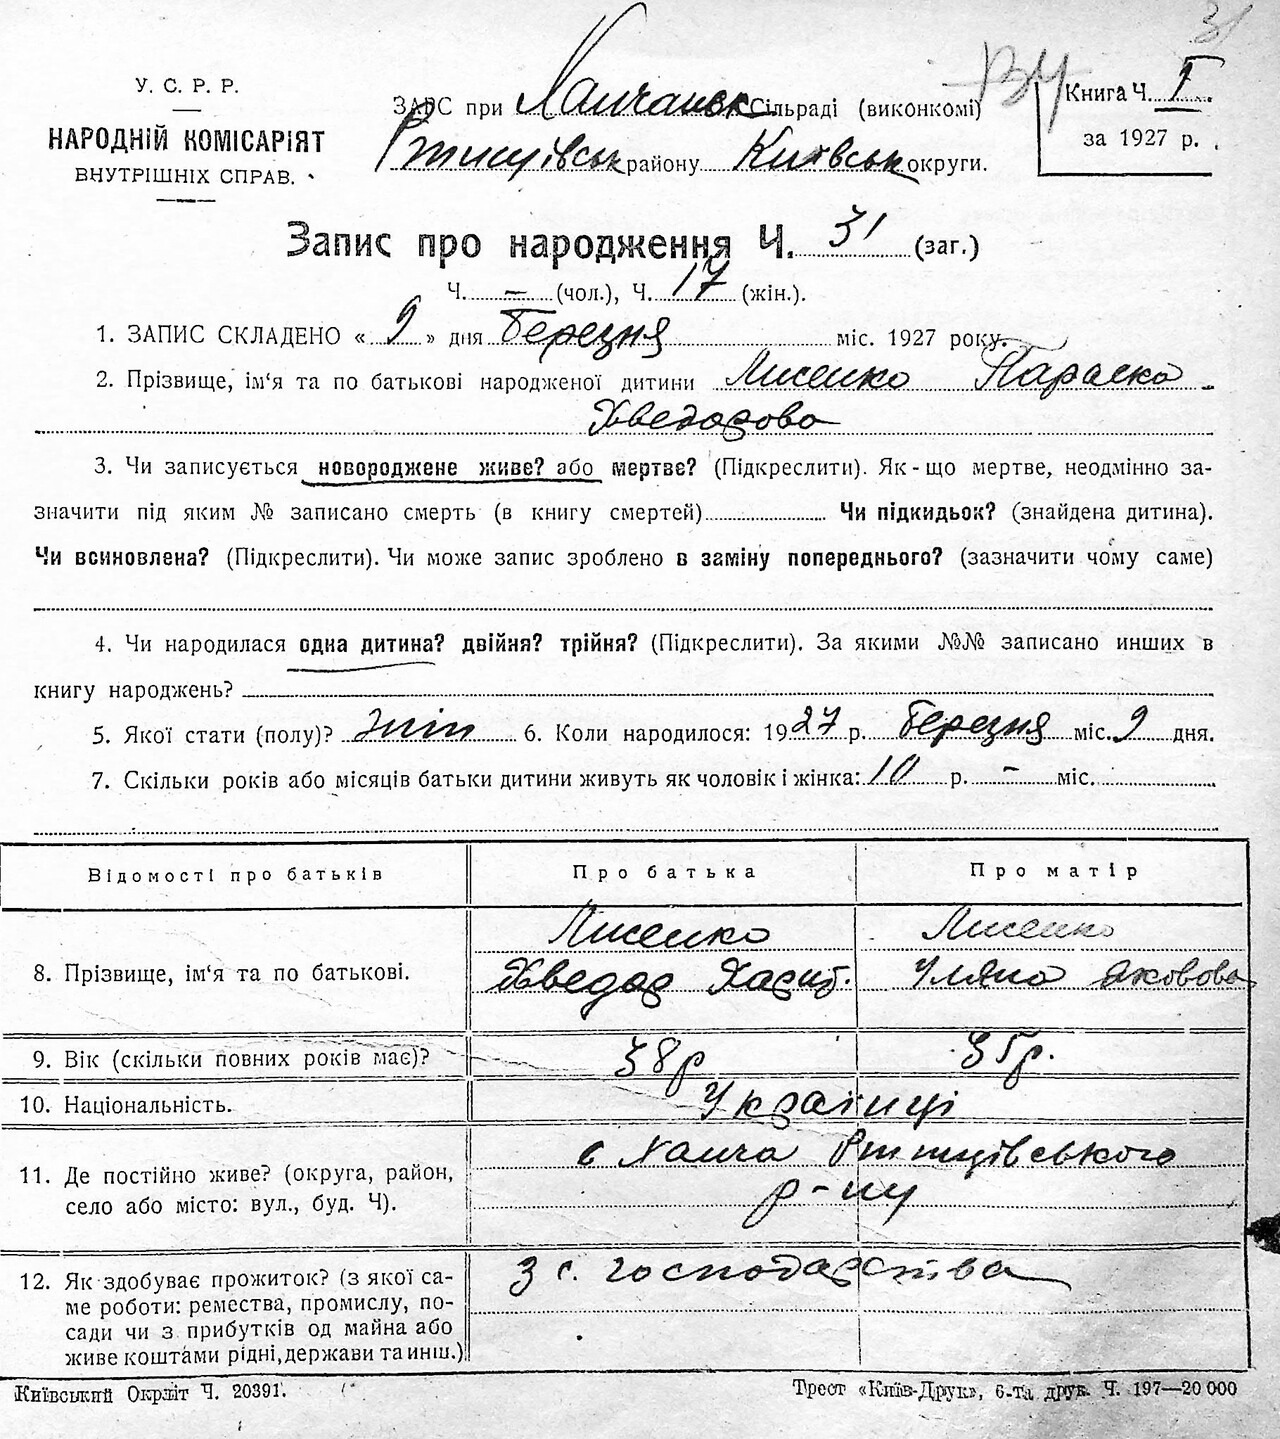 31
У. С. Р. Р.
НАРОДНІЙ КОМІСАРІЯТ
ВНУТРІШНІХ СПРАВ.
ЗАГС при Ханчанськ Сільраді (виконкомі)
Ржищівськ району Київськ округи.
Книга Ч. I
за 1927 р.
Запис про народження Ч. 31 (заг.)
Ч. – (чол.), Ч. 17 (жін.).
1. ЗАПИС СКЛАДЕНО « 9 » дня Березня міс. 1927 року.
2. Прізвище, ім‘я та по батькові народженої дитини Лисенко Параска
Хведорова
3. Чи записується новороджене живе? або мертве? (Підкреслити). Як-що мертве, неодмінно за-
значити під яким № записано смерть (в книгу смертей) Чи підкидьок? (знайдена дитина).
Чи всиновлена? (Підкреслити). Чи може запис зроблено в заміну попереднього? (зазначити чому саме)
4. Чи народилася одна дитина? двійня? трійня? (Підкреслити). За якими №№ записано инших в
книгу народжень?
5. Якої стати (полу)? жін 6. Коли народилося: 1927 р. Березня міс. 9 дня.
7. Скільки років або місяців батьки дитини живуть як чоловік і жінка: 10 р. – міс.
Відомості про батьків
Про батька
Про матір
8. Прізвище, ім‘я та по батькові.
Лисенко
Хведор Харит.
Лисенко
Уляна Яковова
9. Вік (скільки повних років має)?
38 р
35 р.
10. Національність.
Українці
11. Де постійно живе? (округа, район,
село або місто: вул., буд. Ч).
с Ханча Ржищівського
р-ну
12. Як здобуває прожиток? (з якої са-
ме роботи: ремества, промислу, по-
сади чи з прибутків од майна або
живе коштами рідні, держави та инш.)
З с. господарства
Київський Окрліт Ч. 20391.
Трест «Київ-Друк», 6-та друк. Ч. 197—20 000